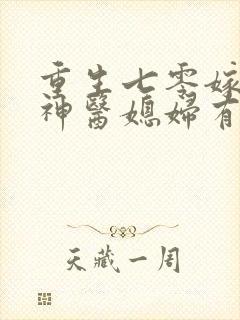 重生七零嫁
神醫媳婦有
天藏一周